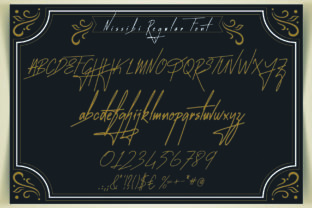 Nissibi Regular Font
ABCDEFGHIJKLMNOPQRSTUVWXYZ
abcdefghijklmnopqrstuvwxyz
0123456789